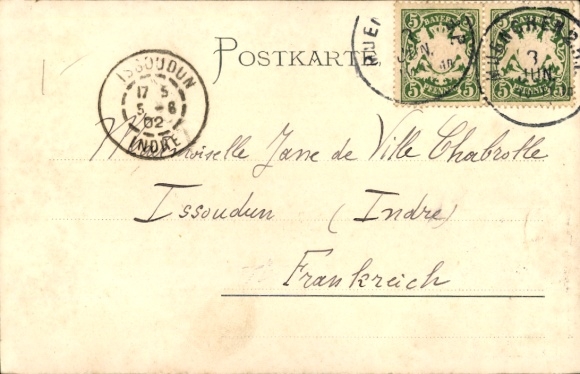 POSTKARTE.
BAYERN BAYERN
5 5 5 5
PFENNIG PFENNIG
JUN.
3
JUN.
ISSOUDUN
17 5
5 - 6
02
INDRE
Mademoiselle Jane de Ville Chabrolle
Issoudun (Indre)
Frankreich